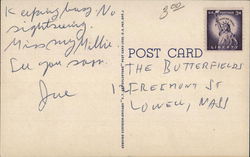 Keeping busy. No
sightseeing.
Miss my Millie.
See you soon.
Joe
3.00
POST CARD
LIBERTY
THE BUTTERFIELDS
1 FREEMONT ST
LOWELL, MASS